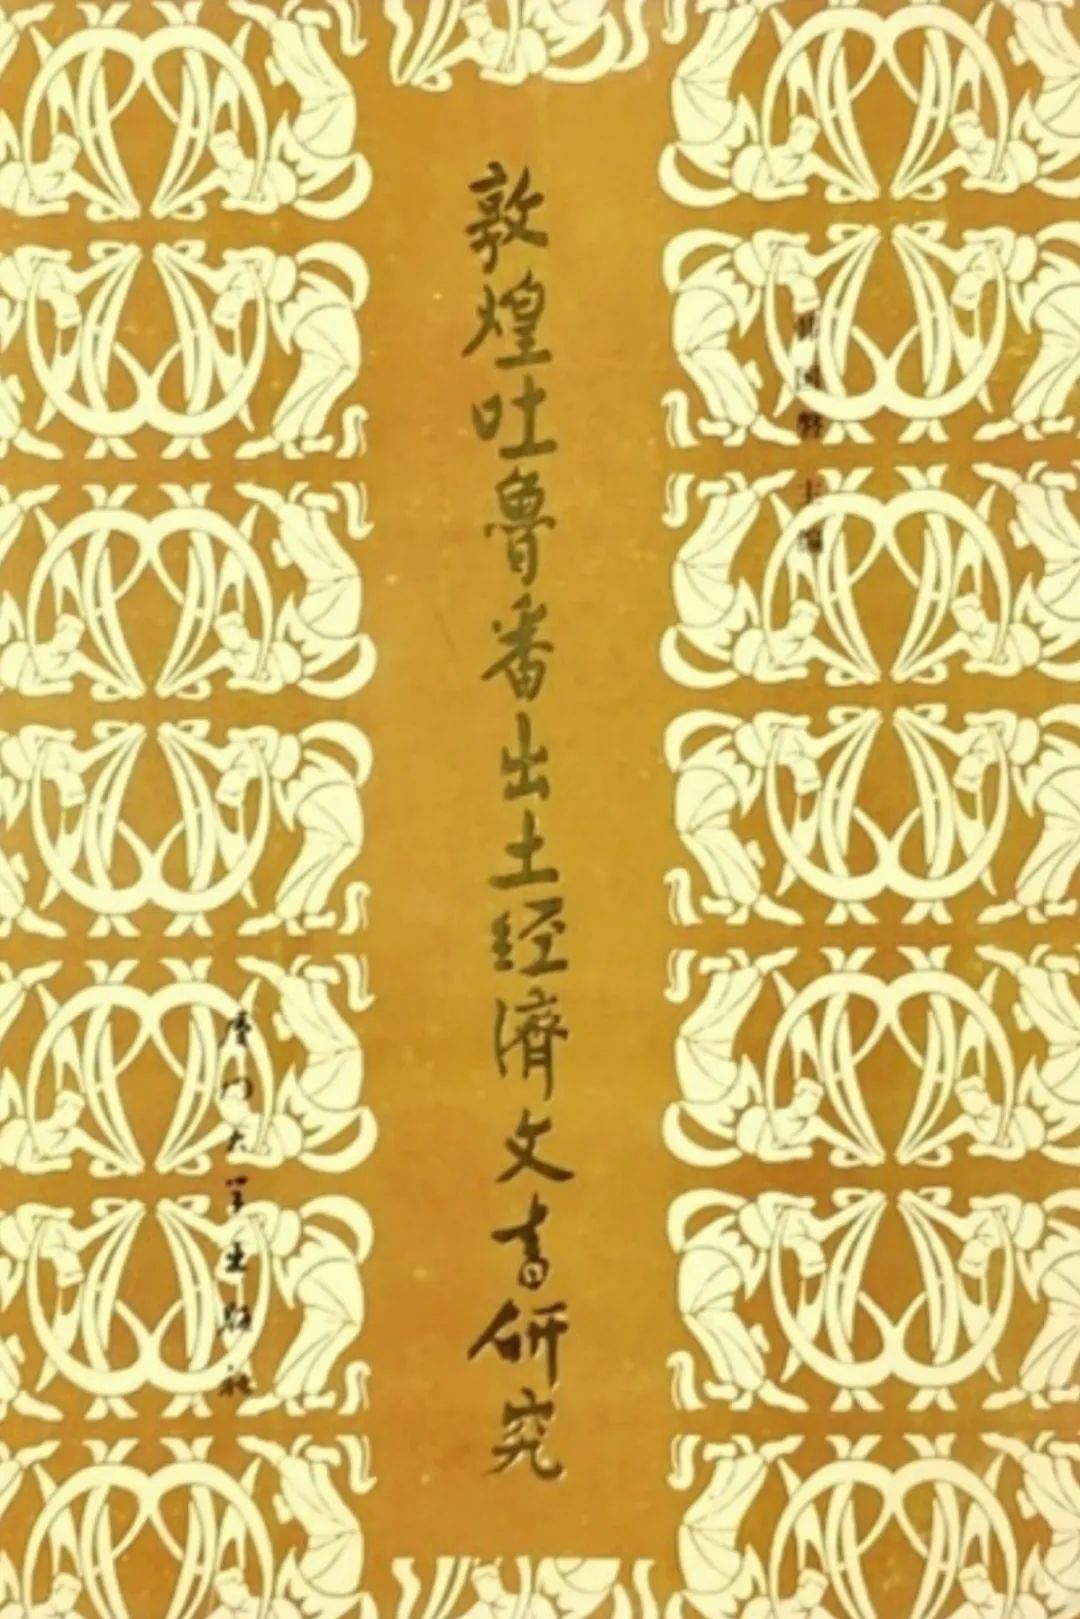 韩国磐 主编
敦煌吐魯番出土经濟文书研究
厦门大学出版社